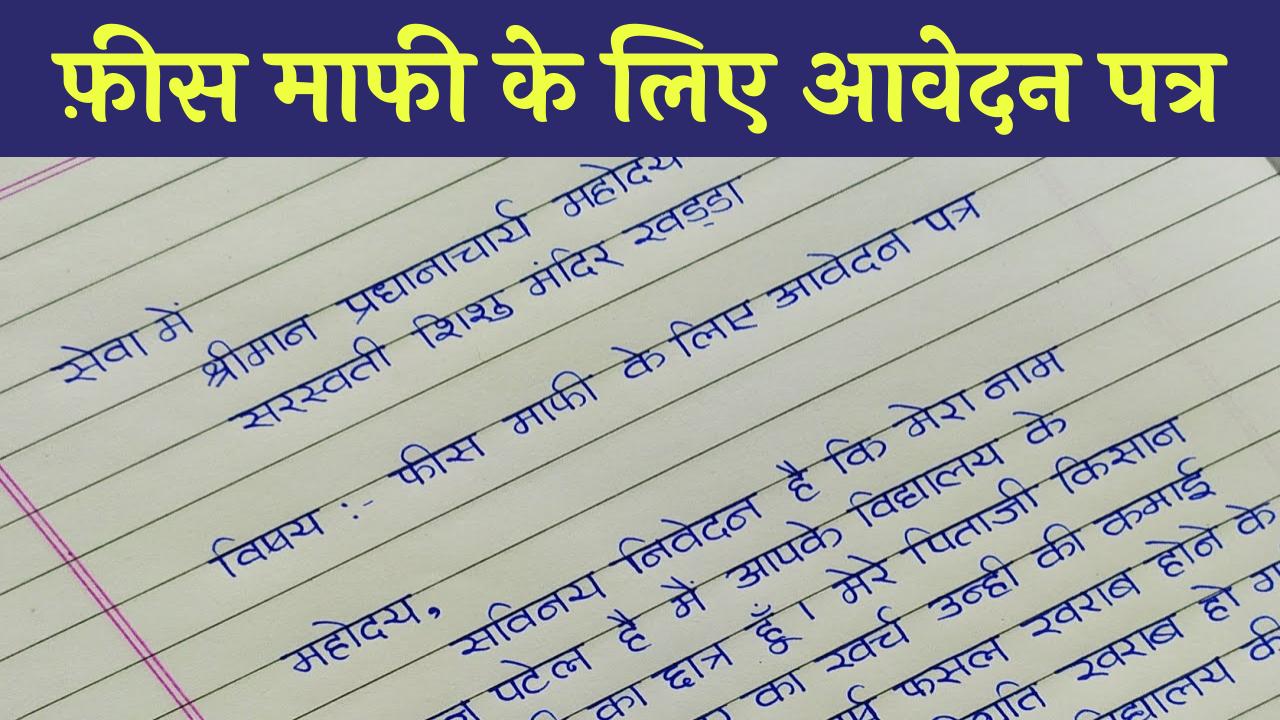 फ़ीस माफी के लिए आवेदन पत्र
सेवा में
श्रीमान प्रधानाचार्य महोदय
सरस्वती शिशु मंदिर खड्डा
विषय :- फीस माफी के लिए आवेदन पत्र
महोदय,
सविनय निवेदन है कि मेरा नाम
पटेल है मैं आपके विद्यालय के
का छात्र हूँ। मेरे पिताजी किसान
का खर्च उन्ही की कमाई
फसल खराब होने के
खराब हो